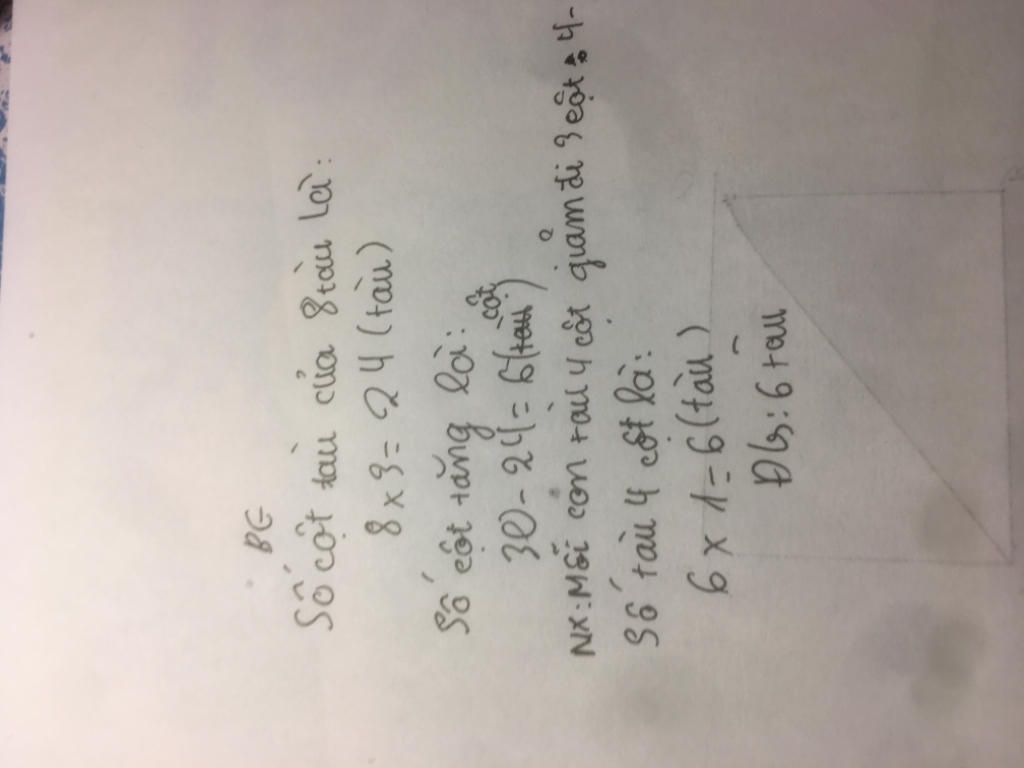 BG
Số cột tàu của 8 tàu là:
8 x 3 = 24 (tàu)
Số cột tăng là:
30 - 24 = 6 (cột)
NX: Mỗi con tàu 4 cột giảm đi 3 cột : 4 -
Số tàu 4 cột là:
6 x 1 = 6 (tàu)
Đ/s: 6 tàu